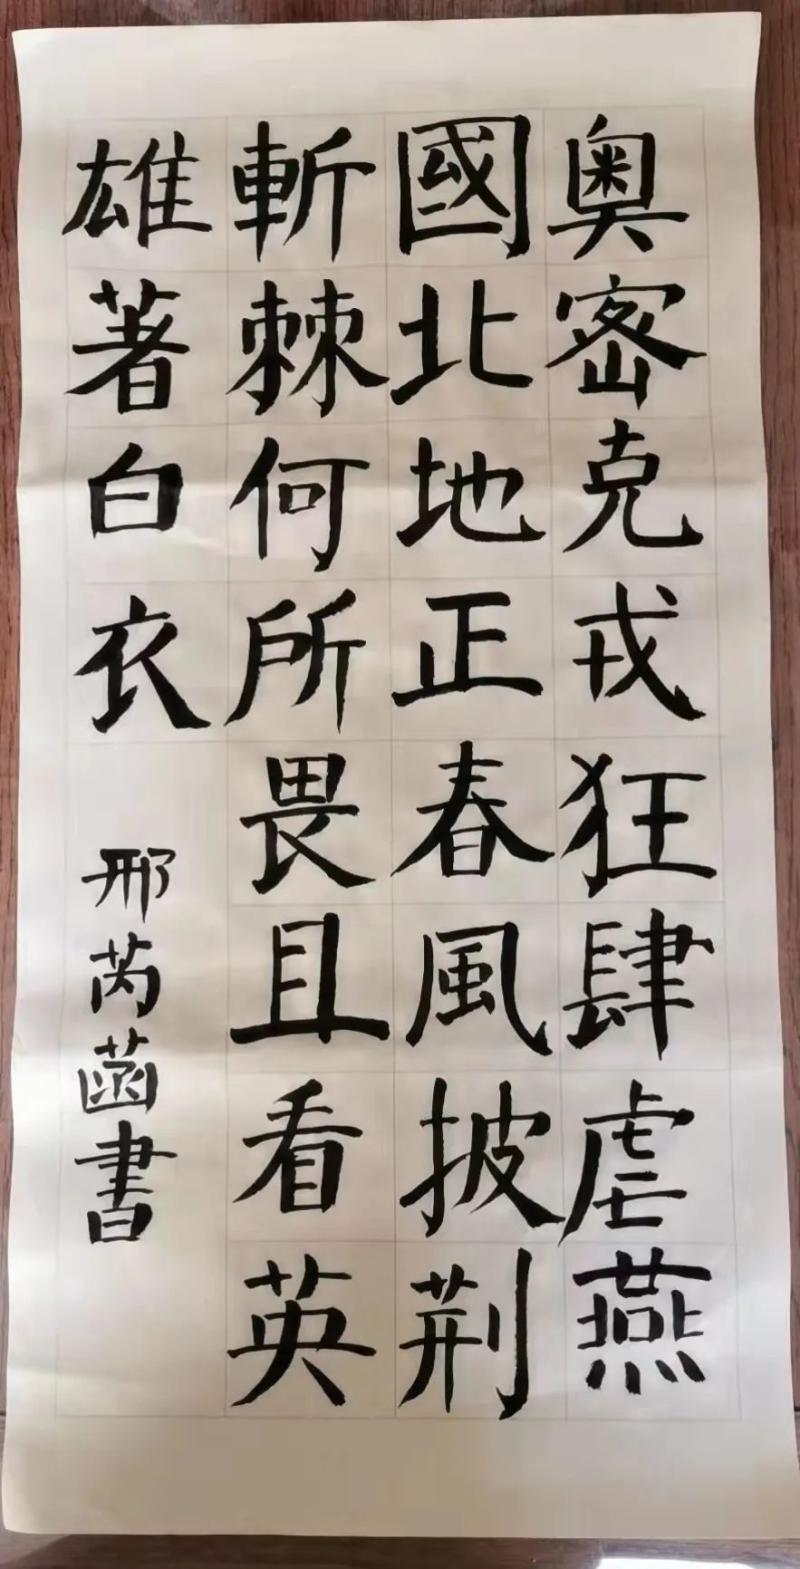 奧密克戎狂肆虐燕
國北地正春風披荆
斬棘何所畏且看英
雄著白衣
邢芮菡書